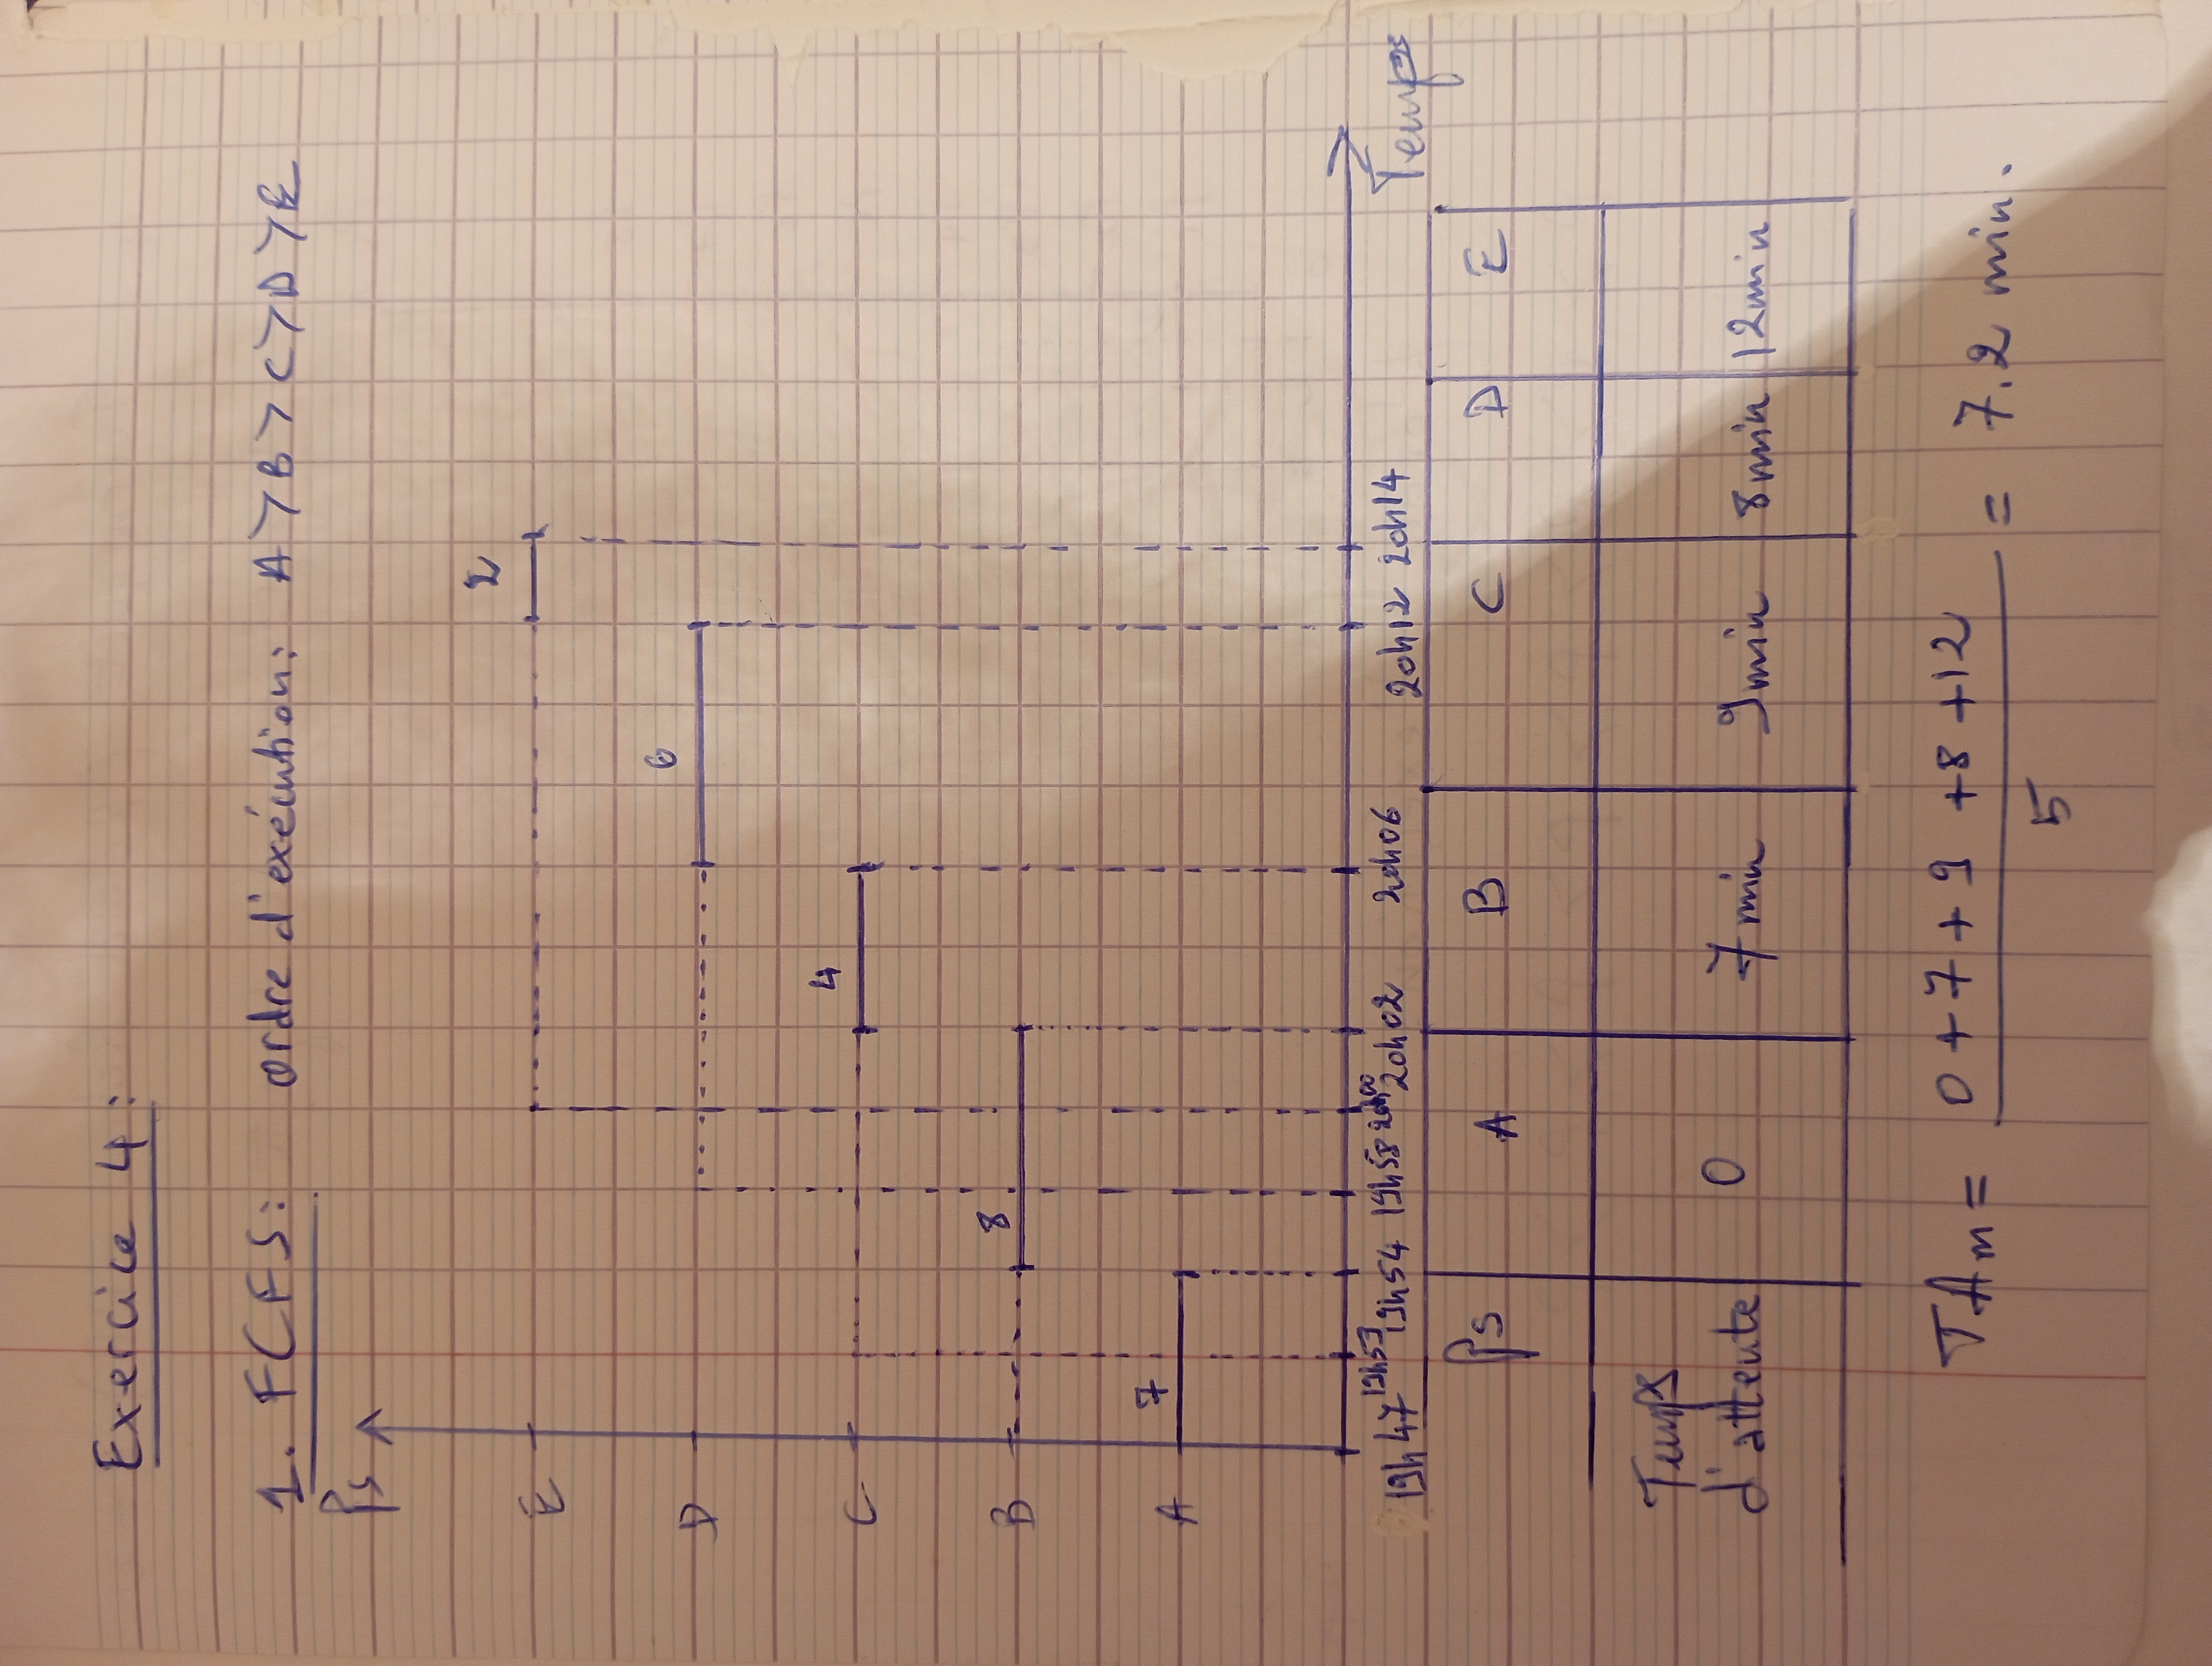 Exercice 4:
1. FCFS: ordre d'exécution: A>B>C>D>E
Ps
E 2
D 6
C 4
B 8
A 7
19h47 19h53 19h54 19h58 20h00 20h02 20h06 20h12 20h14 Temps
Ps A B C D E
Temps
d'attente 0 7min 9min 8min 12min
TAm = 0+7+9+8+12 / 5 = 7.2 min.